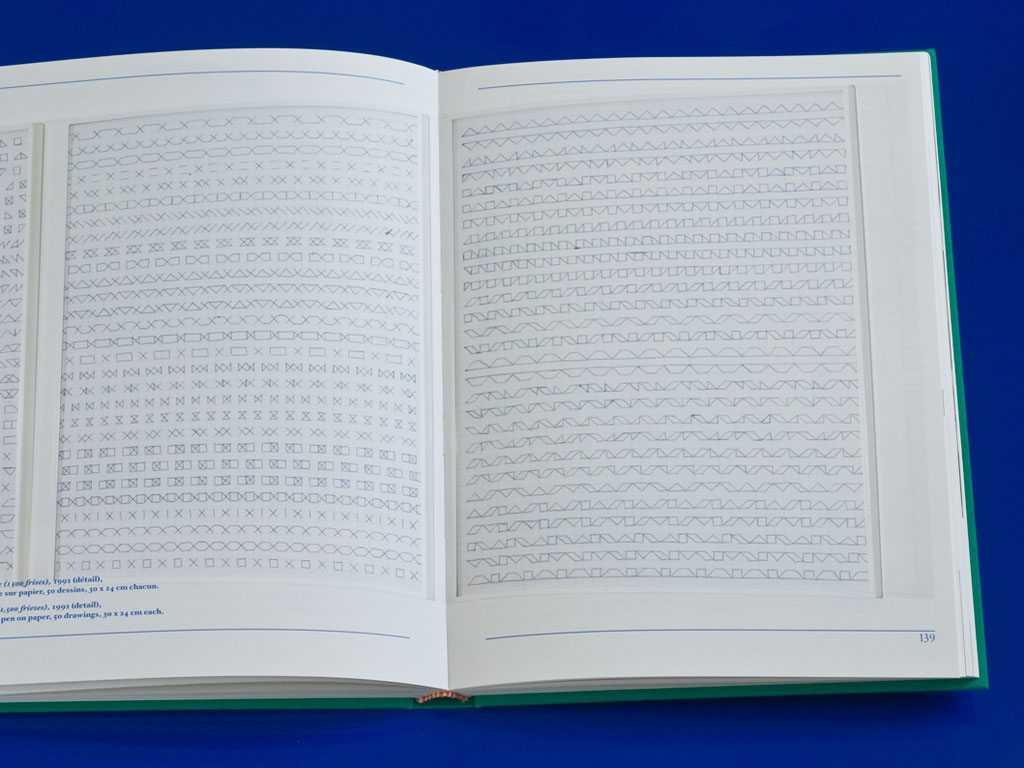 (1 500 frises), 1992 (détail),
sur papier, 50 dessins, 30 x 24 cm chacun.
1,500 friezes), 1992 (detail),
pen on paper, 50 drawings, 30 x 24 cm each.
139